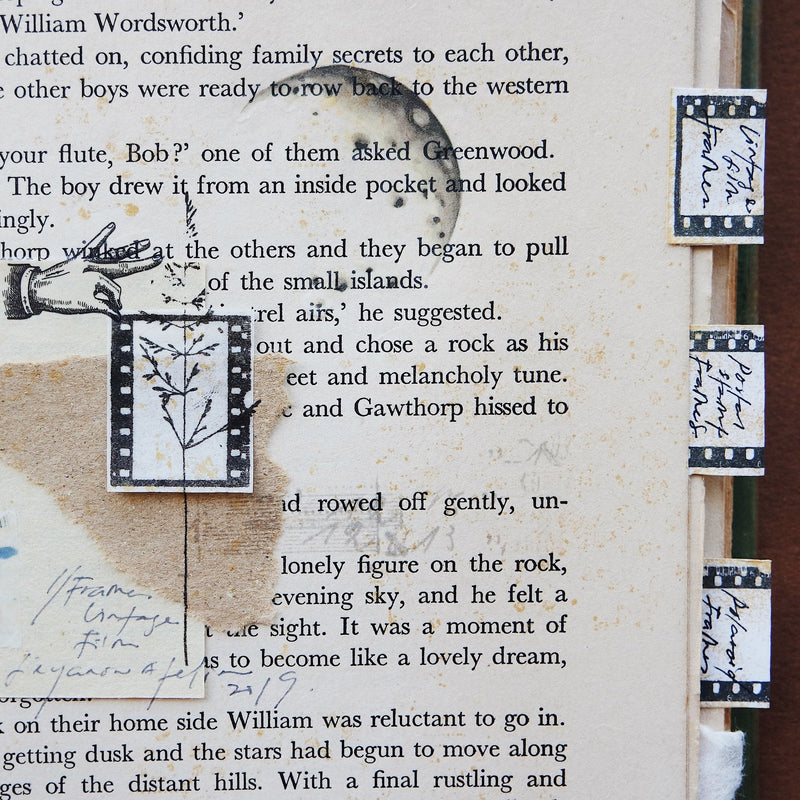 William Wordsworth.'
chatted on, confiding family secrets to each other,
e other boys were ready to row back to the western
your flute, Bob?' one of them asked Greenwood.
The boy drew it from an inside pocket and looked
ingly.
horp winked at the others and they began to pull
of the small islands.
trel airs,' he suggested.
out and chose a rock as his
eet and melancholy tune.
and Gawthorp hissed to
nd rowed off gently, un-
lonely figure on the rock,
evening sky, and he felt a
t the sight. It was a moment of
as to become like a lovely dream,
orgotten.
k on their home side William was reluctant to go in.
getting dusk and the stars had begun to move along
ges of the distant hills. With a final rustling and
1/Frame
Vintage
Film
2019.
Vintage
film
frames
Postal
stamp
frames
Polaroid
frames